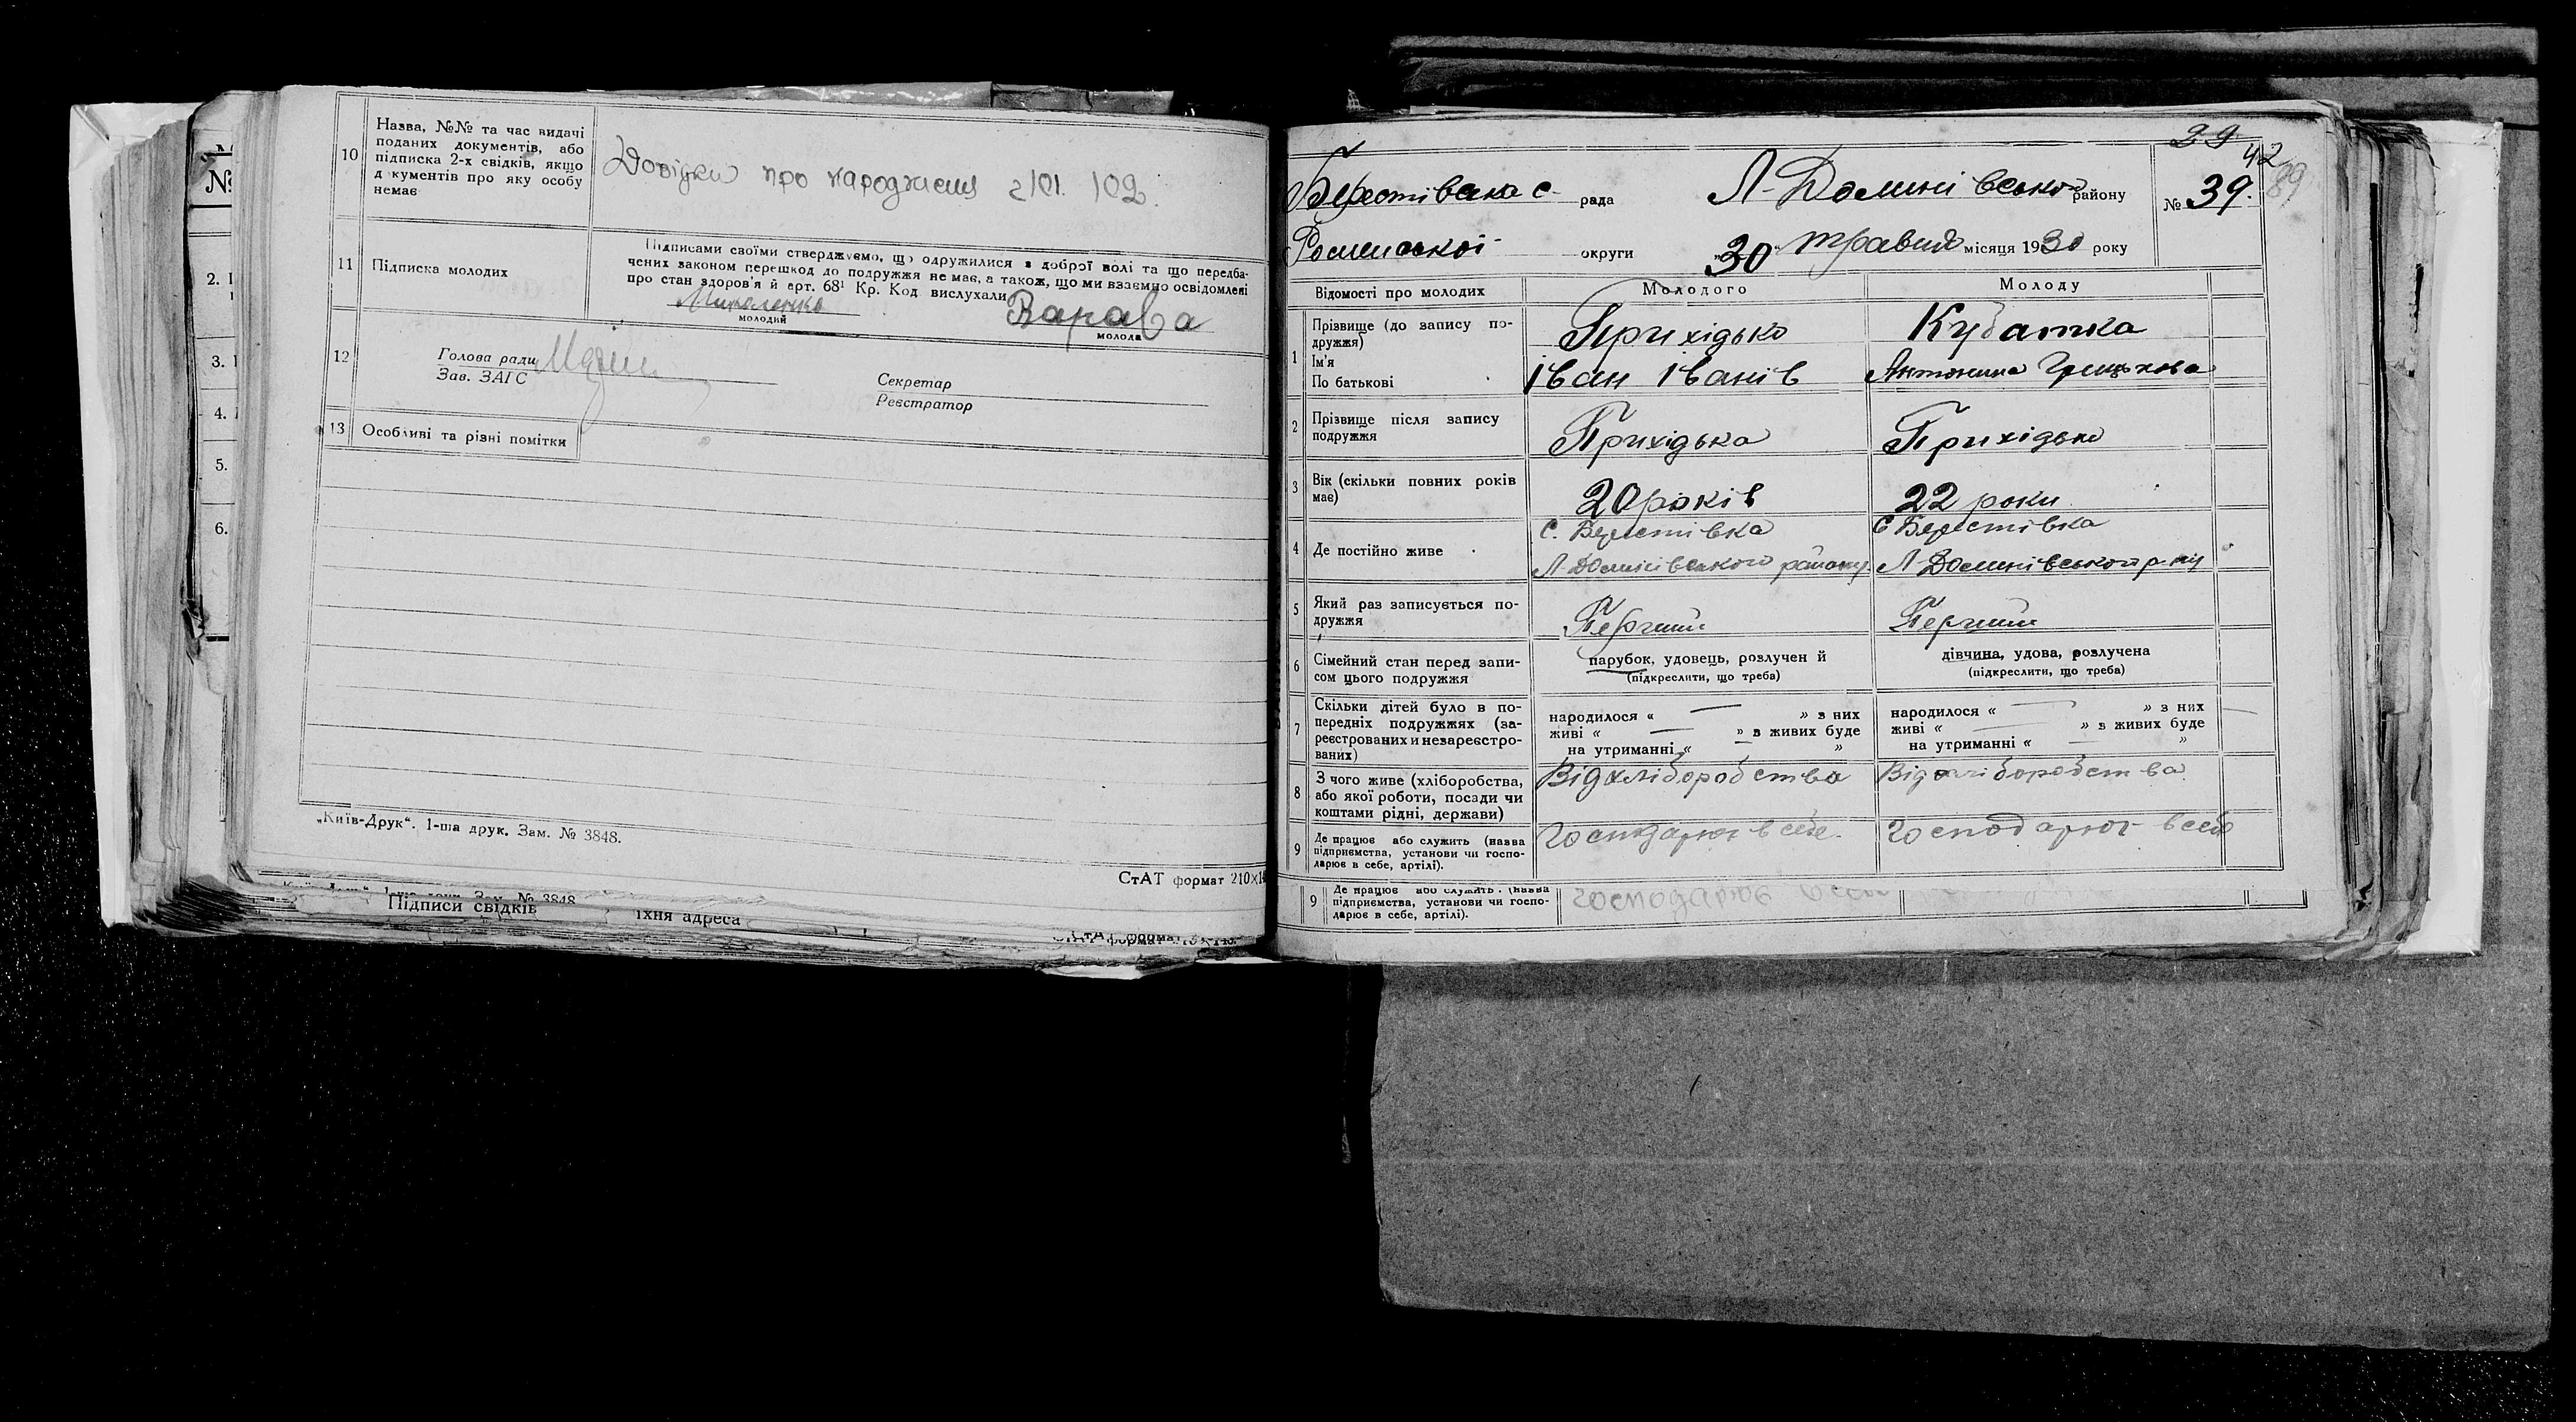 10
Назва, №№ та час видачі
поданих документів, або
підписка 2-х свідків, якщо
д кументів про яку особу
немає
Довідки про народження 101. 102.
11
Підписка молодих
Підписами своїми стверджуємо, що одружилися з доброї волі та що передба-
чених законом перешкод до подружжя не має, а також, що ми взаємно освідомлені
про стан здоров'я й арт. 68¹ Кр. Код вислухали
Миколенко
Варава
молодий
молода
12
Голова ради
Зав. ЗАГС
Секретар
Реєстратор
13
Особливі та різні помітки
„Київ-Друк“. 1-ша друк. Зам. № 3848.
СтАТ формат 210×1
Підписи свідків
їхня адреса
№
2.
3.
4.
5.
6.
39
42
89
Берестівська с. рада Л-Долинівського району
№ 39.
Роменської округи „30“ травня місяця 1930 року
Відомості про молодих
Молодого
Молоду
1
Прізвище (до запису по-
дружжя)
Ім'я
По батькові
Прихідько
Іван Іванів
Кубатка
Антонина Грицькова
2
Прізвище після запису
подружжя
Прихідька
Прихідько
3
Вік (скільки повних років
має)
20 років
22 роки
4
Де постійно живе
с. Берестівка
Л-Долинівського району
с Берестівка
Л-Долинівського р-ну
5
Який раз записується по-
дружжя
Перший
Перший
6
Сімейний стан перед запи-
сом цього подружжя
парубок, удовець, розлучен й
(підкреслити, що треба)
дівчина, удова, розлучена
(підкреслити, що треба)
7
Скільки дітей було в по-
передніх подружжях (за-
реєстрованих и незареєстро-
ваних)
народилося « — » з них
живі « — » з живих буде
на утриманні « — »
народилося « — » з них
живі « — » з живих буде
на утриманні « — »
8
З чого живе (хліборобства,
або якої роботи, посади чи
коштами рідні, держави)
Від хліборобства
Від хліборобства
9
Де працює або служить (назва
підприємства, установи чи госпо-
дарює в себе, артілі).
Господарює в себе
Господарює в себе
9
Де працює або служить. (назва
підприємства, установи чи госпо-
дарює в себе, артілі).
господарює в себе